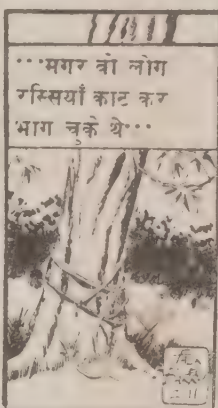 ···मगर वो लोग
रस्सियाँ काट कर
भाग चुके थे···